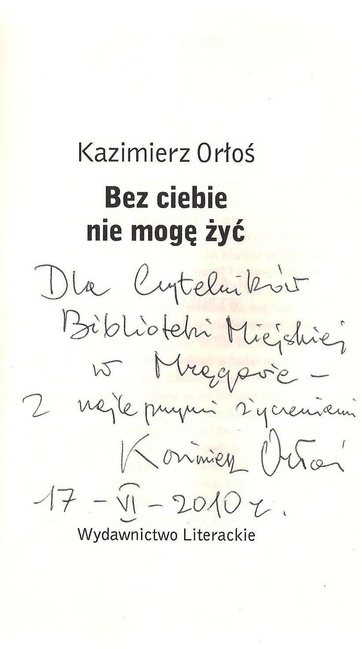 Kazimierz Orłoś
Bez ciebie
nie mogę żyć
Dla Czytelników
Biblioteki Miejskiej
w Mrągowie –
z najlepszymi życzeniami
Kazimierz Orłoś
17 – VI – 2010 r.
Wydawnictwo Literackie